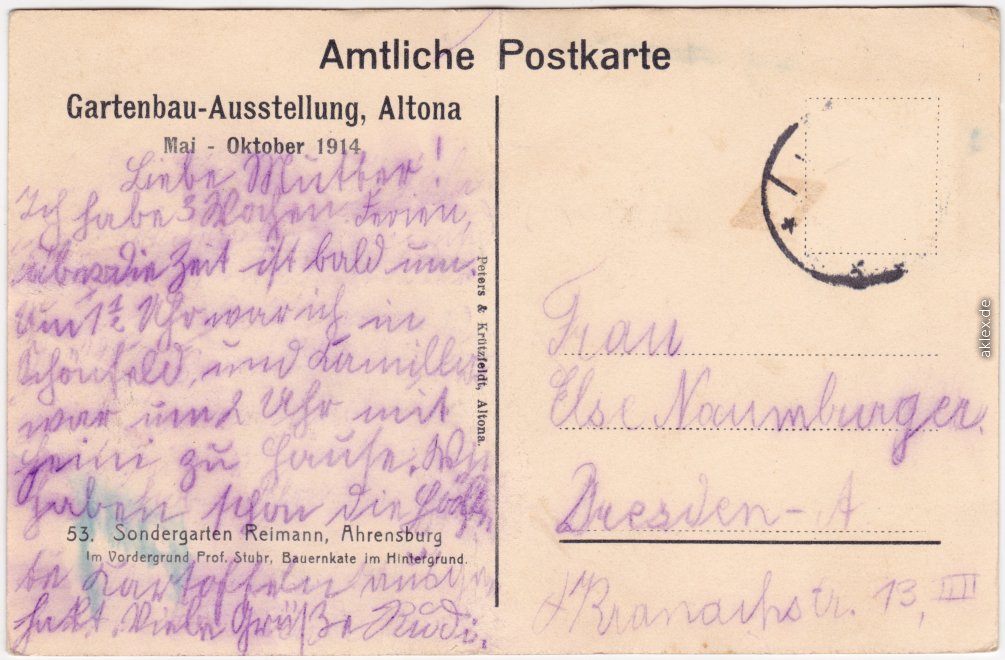 Amtliche Postkarte
Gartenbau-Ausstellung, Altona
Mai - Oktober 1914
Liebe Mutter!
Ich habe 3 Wochen Ferien,
aber die Zeit ist bald um.
Um 1 1/2 Uhr war ich in
Schönfeld, und Kamilla
war um 2 Uhr mit
Heini zu Hause. Wir
haben schon die
53. Sondergarten Reimann, Ahrensburg
Im Vordergrund Prof. Stuhr, Bauernkate im Hintergrund.
te Kartoffeln
hakt. Viele Grüße Rudi.
Peters & Krützfeldt, Altona.
Frau
Else Naumburger
Dresden-A
Kranachstr. 13, III
aklex.de